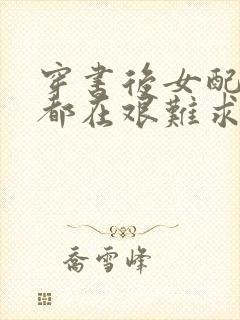 穿書後女配
都在艱難求
喬雪峰